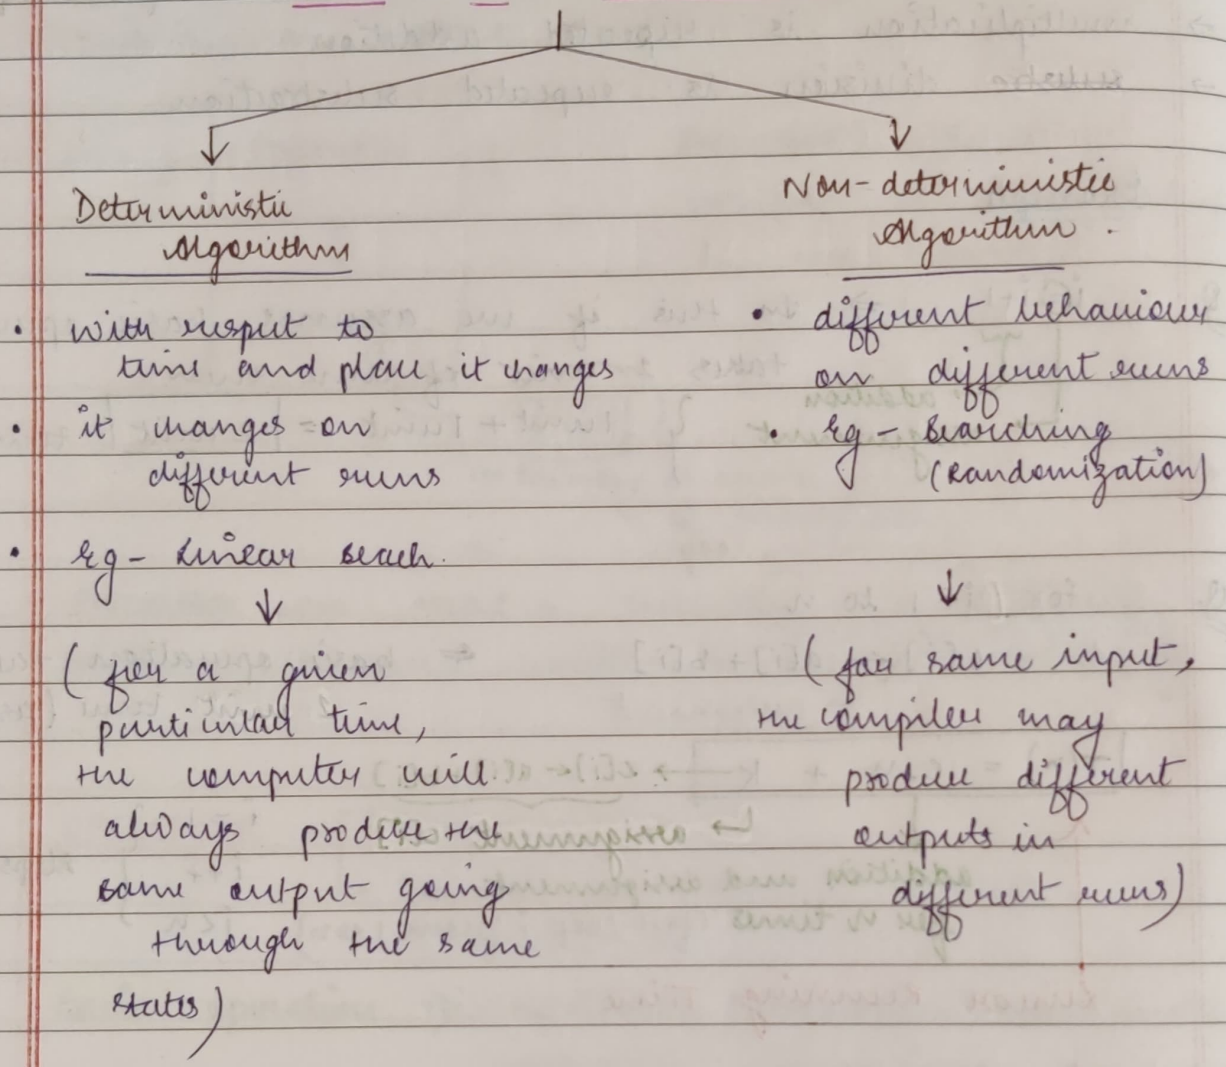 Deterministic
Algorithm
• with respect to
time and place it changes
• it changes on
different runs
• Eg - Linear seach.
(for a given
particular time,
the computer will
always produce the
same output going
through the same
states)
Non-deterministic
Algorithm.
• different behaviour
on different runs
• Eg - Searching
(Randomization)
(for same input,
the compiler may
produce different
outputs in
different runs)